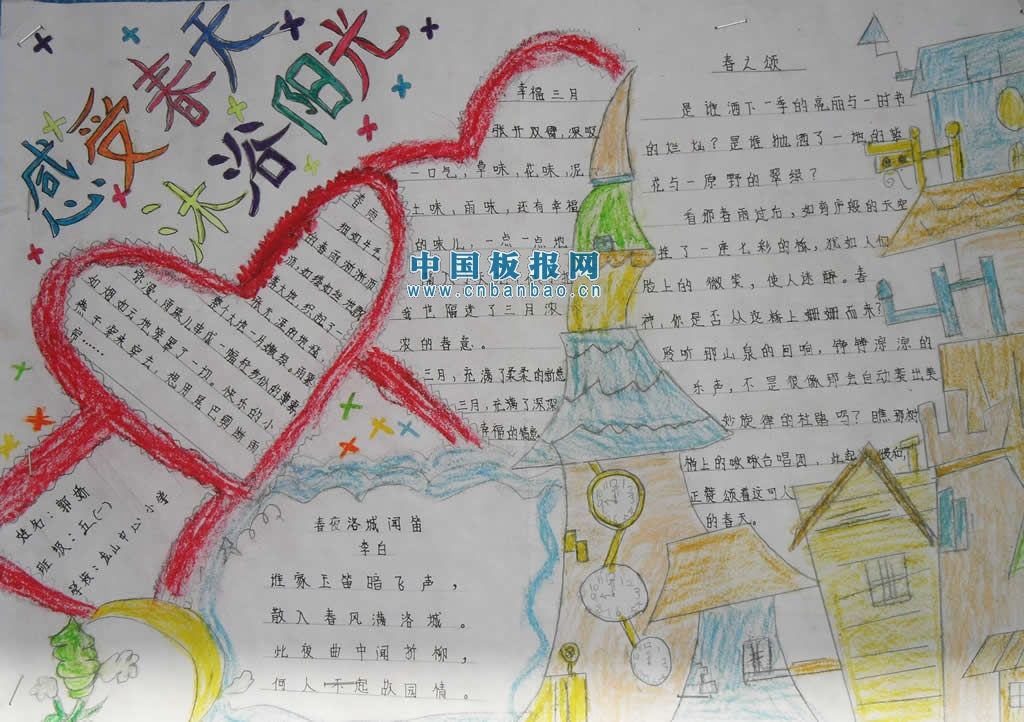 感受春天
沐浴阳光
幸福三月
张开双臂,深吸
一口气,草味,花味,泥
土味,雨味,还有幸福
的味儿,一点一点地
我也陷进了三月浓
浓的春意。
三月,充满了柔柔的新意
三月,充满了深深
幸福的情意
春之颂
是谁洒下一季的亮丽与一时书
的烂灿?是谁抛洒了一地的紫
花与一原野的翠绿?
看那春雨过后,如穹庐般的天空
挂了一座七彩的桥,犹如人们
脸上的微笑,使人迷醉。春
神,你是否从这桥上姗姗而来?
聆听那山泉的回响,铮铮淙淙的
乐声,不是很像那会自动奏出美
妙旋律的社甿吗?瞧那树
梢上的啾啾合唱团,此起彼伏
正赞颂着这可人
的春天。
春雨
的春雨,淅淅沥
如烟如云地笼罩了一切。快乐的小
燕子穿来穿去,想用尾巴剪断雨
帘……
姓名:郭娇
班级:五(一)
学校:龙山中心小学
春夜洛城闻笛
李白
谁家玉笛暗飞声,
散入春风满洛城。
此夜曲中闻折柳,
何人不起故园情。
中国板报网
www.cnbanbao.cn